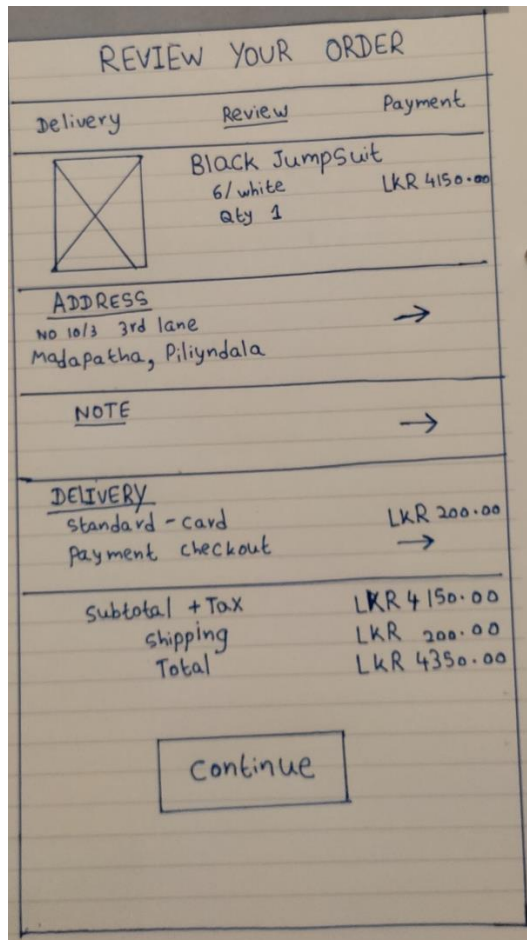 REVIEW YOUR ORDER
Delivery Review Payment
Black JumpSuit
6/white LKR 4150.00
Qty 1
ADDRESS
NO 10/3 3rd lane
Madapatha, Piliyndala
NOTE
DELIVERY
Standard - card LKR 200.00
Payment checkout
Subtotal + Tax LKR 4150.00
Shipping LKR 200.00
Total LKR 4350.00
Continue